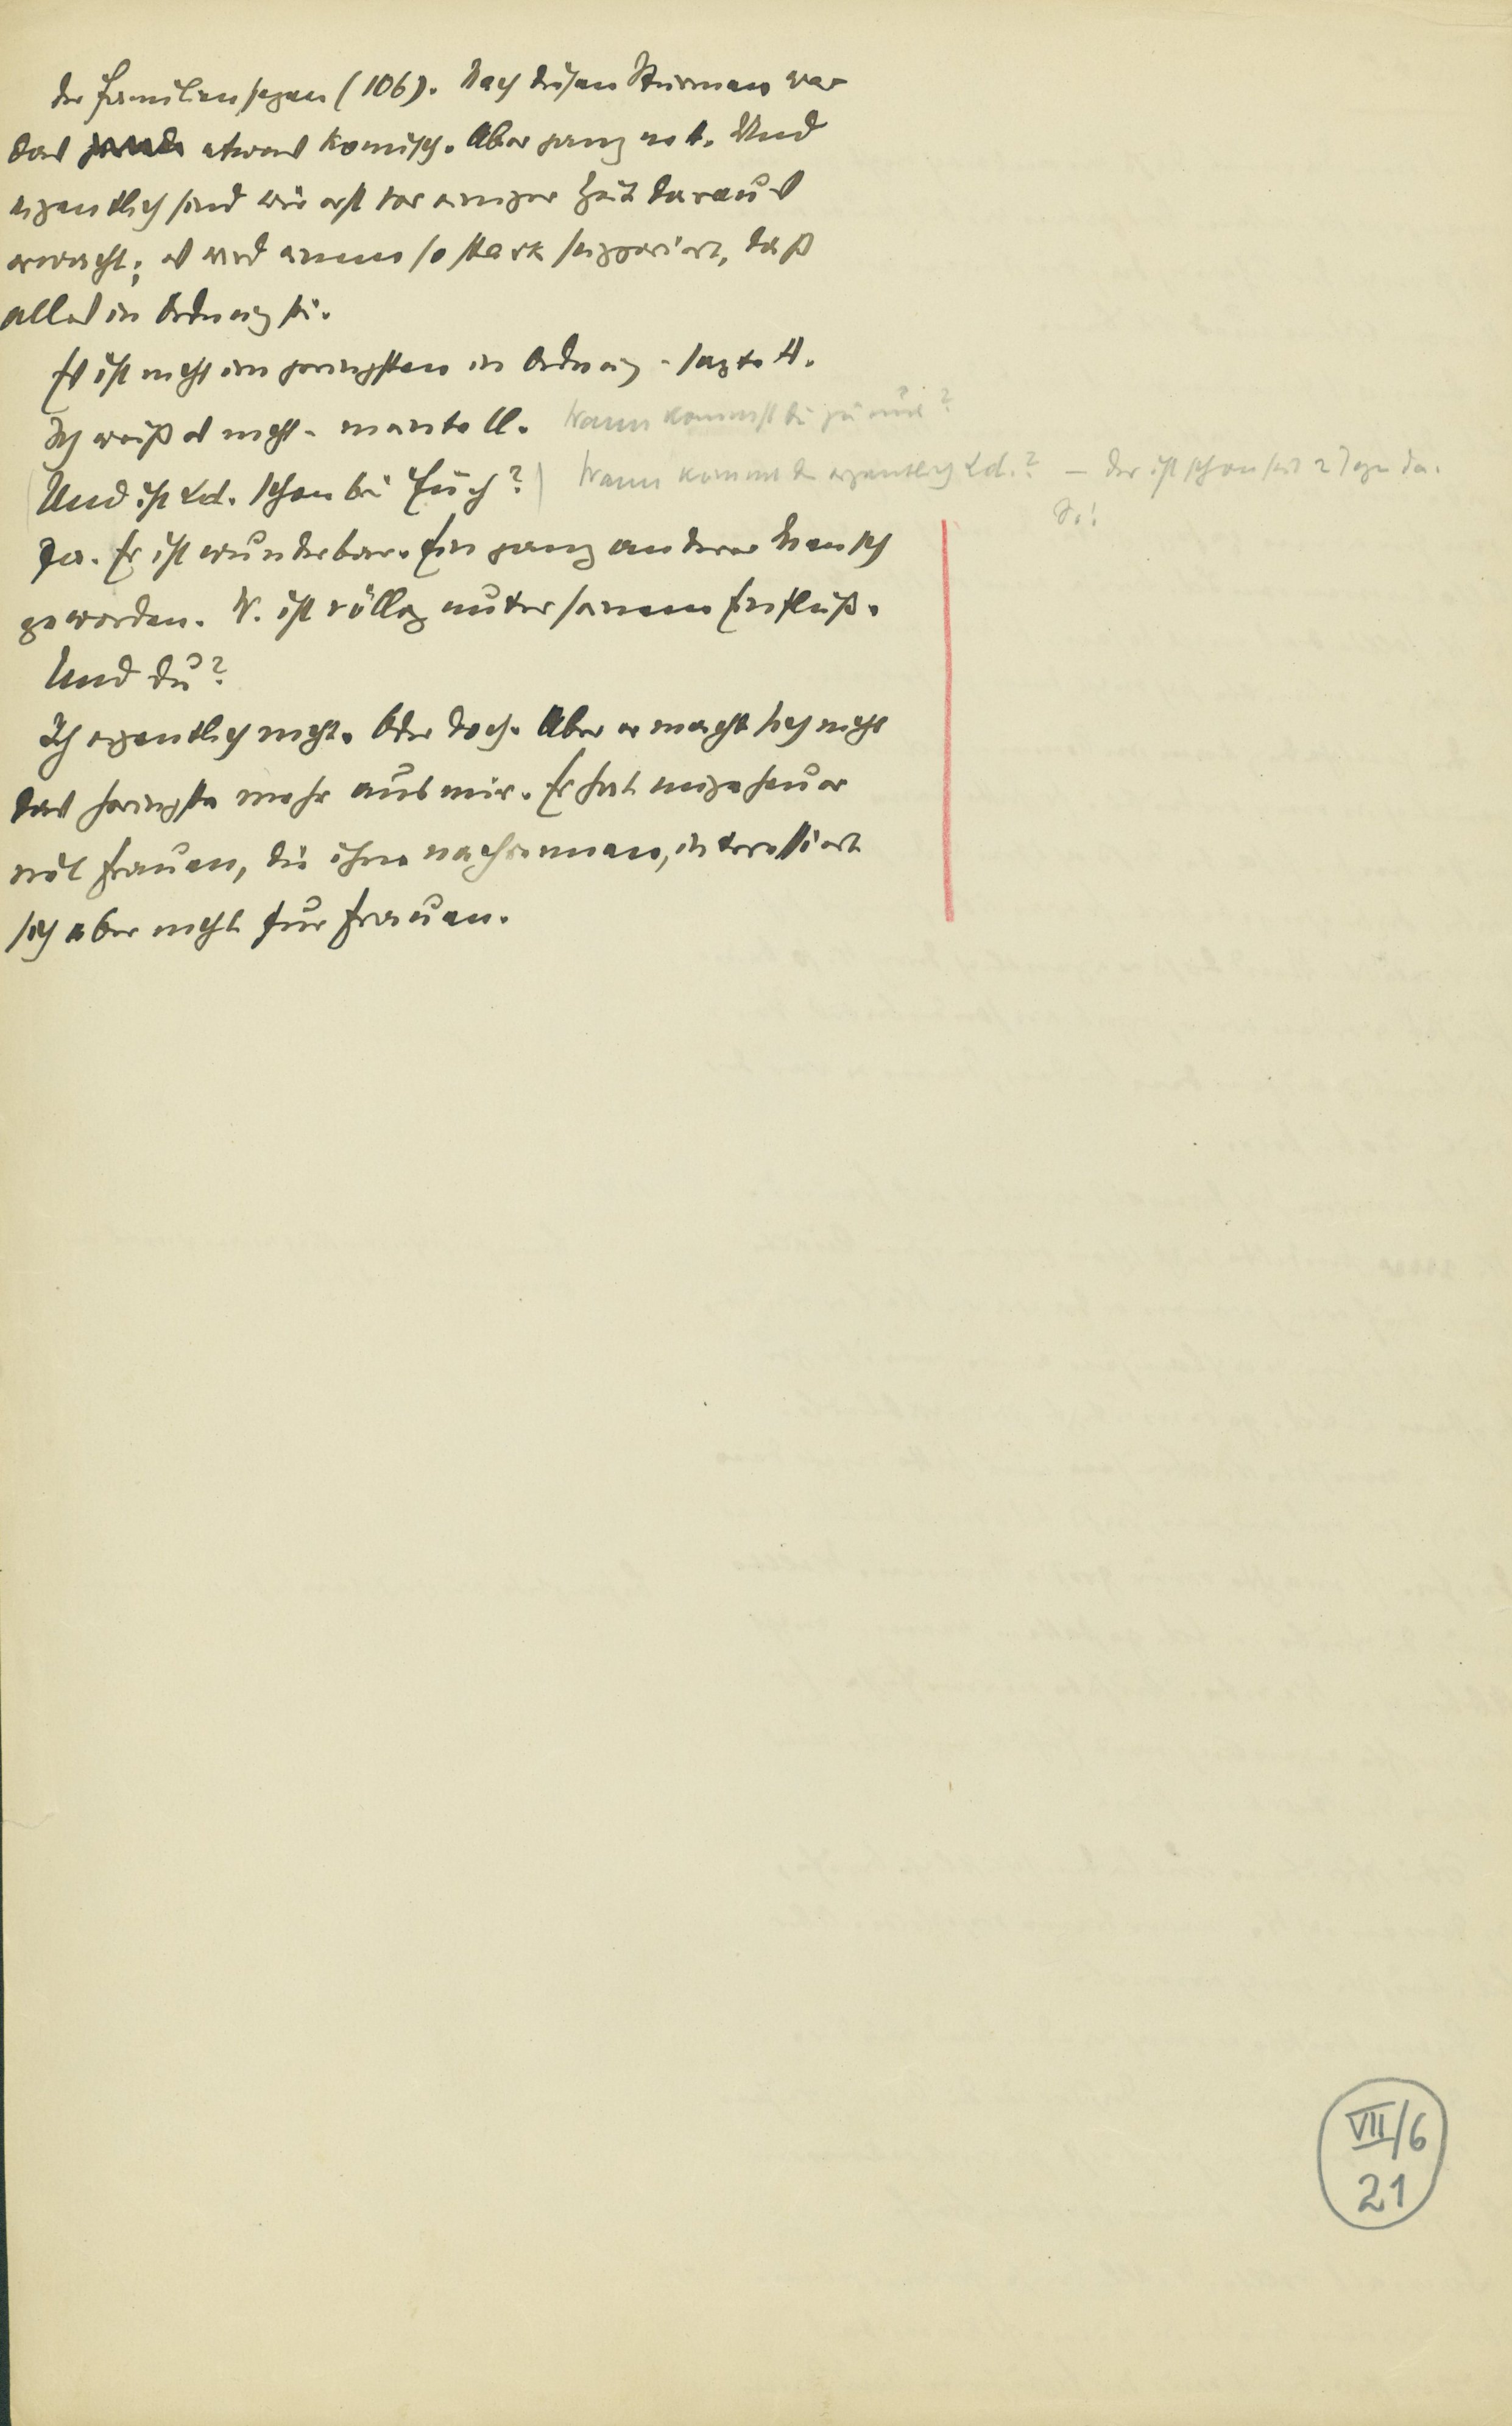 der Familiensegen (106). Nach diesen Stürmen war
das etwas komisch. Aber ganz nett. Und
eigentlich sind wir erst vor einiger Zeit daraus
erwacht; es wird einem so stark suggeriert, daß
alles in Ordnung sei.
Es ist nicht im geringsten in Ordnung - sagte A.
Ich weiß es nicht - meinte Ul. Wann kommst du zu mir?
(Und ist Ld. schon bei Euch?) Wann kommt denn eigentlich Ld.? — Der ist schon seit 2 Tagen da.
So!
Ja. Er ist wunderbar. Ein ganz anderer Mensch
geworden. W. ist völlig unter seinem Einfluß.
Und du?
Ich eigentlich nicht. Oder doch. Aber er macht sich nicht
das Geringste mehr aus mir. Er hat ungeheuer
viel Frauen, die ihm nachrennen, interessiert
sich aber nicht für Frauen.
VII/6
21